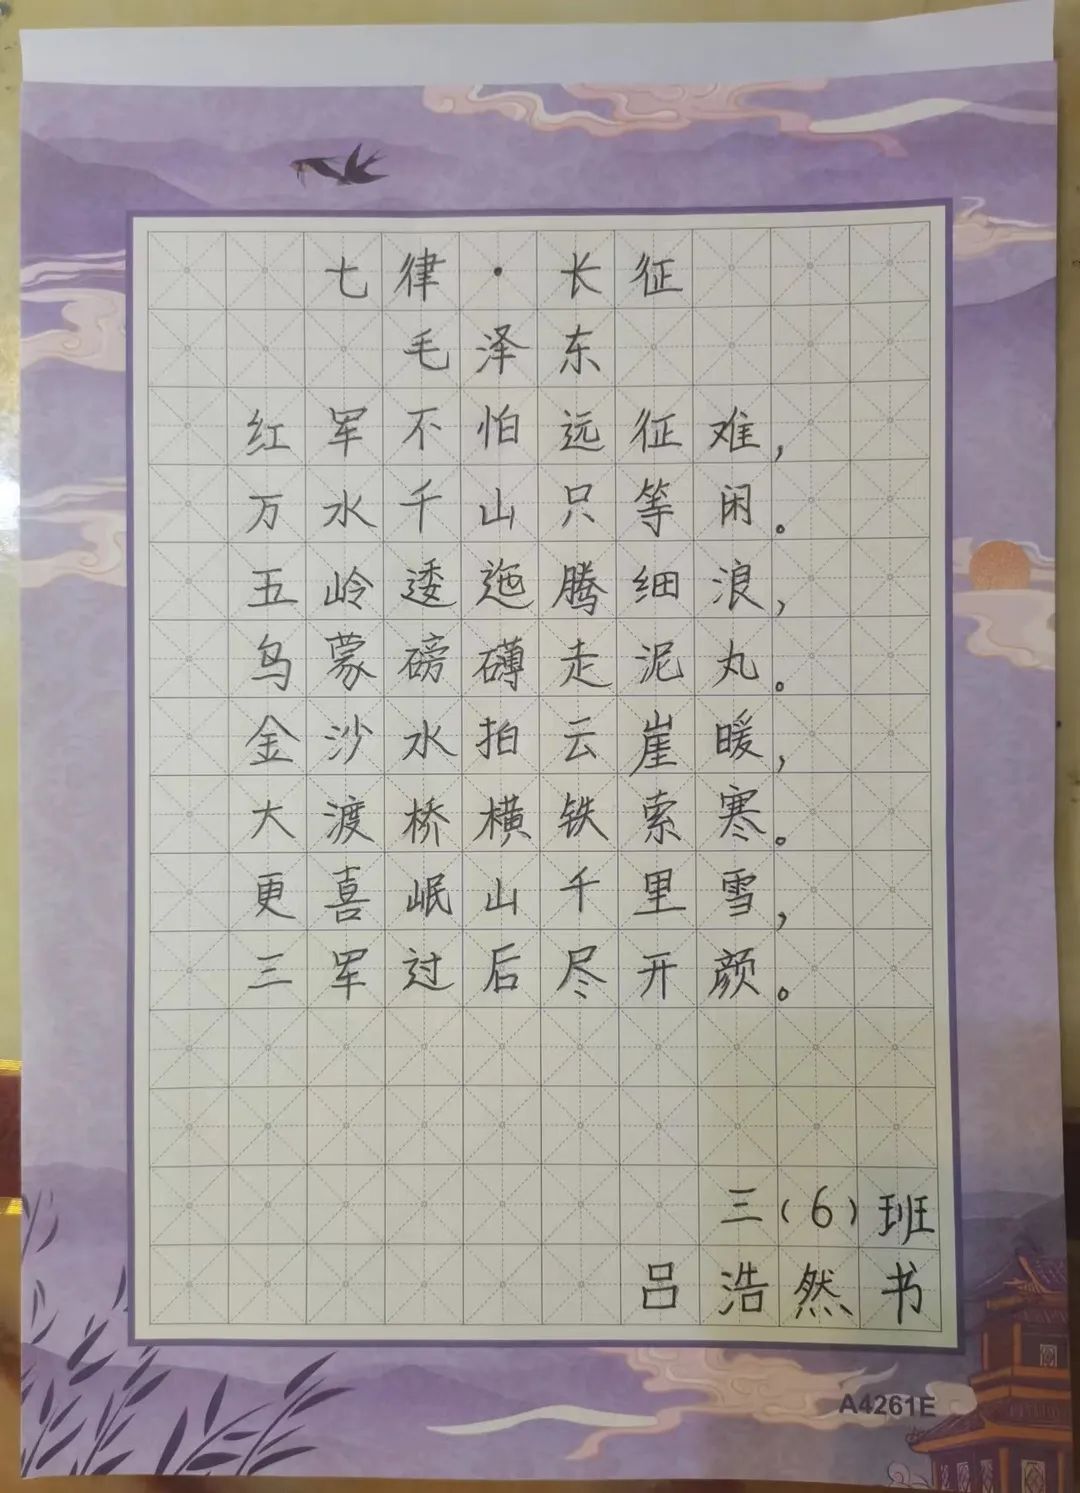 七律·长征
毛泽东
红军不怕远征难，
万水千山只等闲。
五岭逶迤腾细浪，
乌蒙磅礴走泥丸。
金沙水拍云崖暖，
大渡桥横铁索寒。
更喜岷山千里雪，
三军过后尽开颜。
三（6）班
吕浩然书
A4261E